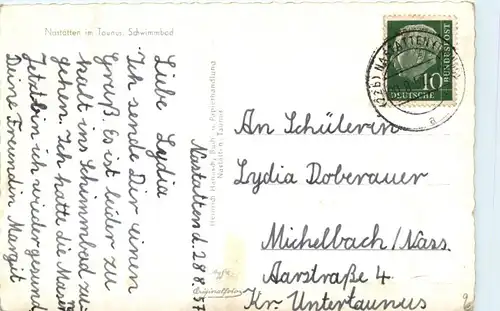 Nastätten im Taunus, Schwimmbad
Nastätten d. 28.8.57
Liebe Lydia
Ich sende Dir einen
Gruß. Es ist leider zu
kalt ins Schimmbad zu
gehen. Ich hatte die Masern
Jetzt bin ich wieder gesund
Deine Freundin Margit
NASTÄTTEN
a
10
DEUTSCHE
BUNDESPOST
An Schülerin
Lydia Doberauer
Michelbach/Nass.
Aarstraße 4
Kr. Untertaunus